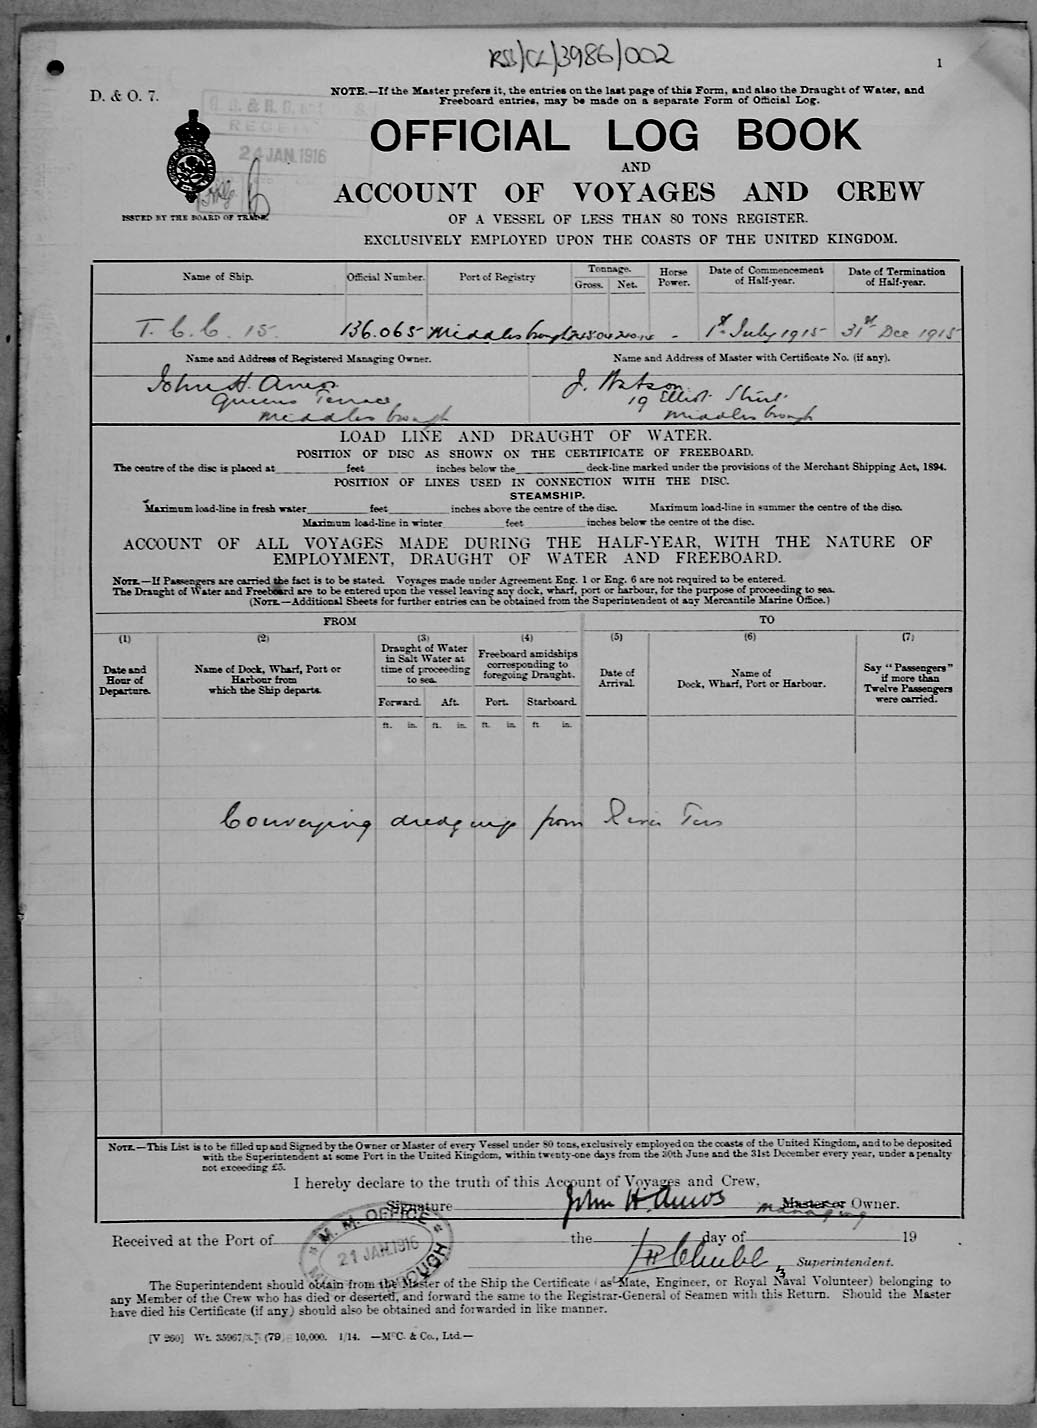 RSS/CL/3986/002
1
D. & O. 7.
NOTE.—If the Master prefers it, the entries on the last page of this Form, and also the Draught of Water, and
Freeboard entries, may be made on a separate Form of Official Log.
24 JAN. 1916
OFFICIAL LOG BOOK
AND
ACCOUNT OF VOYAGES AND CREW
ISSUED BY THE BOARD OF TRADE.
OF A VESSEL OF LESS THAN 80 TONS REGISTER.
EXCLUSIVELY EMPLOYED UPON THE COASTS OF THE UNITED KINGDOM.
Name of Ship. Official Number. Port of Registry Tonnage. Gross. Net. Horse Power. Date of Commencement of Half-year. Date of Termination of Half-year.
T. C. C. 15. 136.065 Middlesbrough - 1st July 1915 31st Dec 1915
Name and Address of Registered Managing Owner. Name and Address of Master with Certificate No. (if any).
John H. Amos J. Watson
Queens Terrace 19 Elliot Street
Middlesbrough Middlesbrough
LOAD LINE AND DRAUGHT OF WATER.
POSITION OF DISC AS SHOWN ON THE CERTIFICATE OF FREEBOARD.
The centre of the disc is placed at feet inches below the deck-line marked under the provisions of the Merchant Shipping Act, 1894.
POSITION OF LINES USED IN CONNECTION WITH THE DISC.
STEAMSHIP.
Maximum load-line in fresh water feet inches above the centre of the disc. Maximum load-line in summer the centre of the disc.
Maximum load-line in winter feet inches below the centre of the disc.
ACCOUNT OF ALL VOYAGES MADE DURING THE HALF-YEAR, WITH THE NATURE OF
EMPLOYMENT, DRAUGHT OF WATER AND FREEBOARD.
NOTE.—If Passengers are carried the fact is to be stated. Voyages made under Agreement Eng. 1 or Eng. 6 are not required to be entered.
The Draught of Water and Freeboard are to be entered upon the vessel leaving any dock, wharf, port or harbour, for the purpose of proceeding to sea.
(NOTE.—Additional Sheets for further entries can be obtained from the Superintendent of any Mercantile Marine Office.)
FROM TO
(1) (2) (3) (4) (5) (6) (7)
Date and Hour of Departure. Name of Dock, Wharf, Port or Harbour from which the Ship departs. Draught of Water in Salt Water at time of proceeding to sea. Freeboard amidships corresponding to foregoing Draught. Date of Arrival. Name of Dock, Wharf, Port or Harbour. Say "Passengers" if more than Twelve Passengers were carried.
Forward. Aft. Port. Starboard.
ft. in. ft. in. ft. in. ft in.
Conveying dredgings from River Tees
NOTE.—This List is to be filled up and Signed by the Owner or Master of every Vessel under 80 tons, exclusively employed on the coasts of the United Kingdom, and to be deposited
with the Superintendent at some Port in the United Kingdom, within twenty-one days from the 30th June and the 31st December every year, under a penalty
not exceeding £5.
I hereby declare to the truth of this Account of Voyages and Crew,
Signature John H. Amos Master or Owner.
managing
M. M. OFFICE
21 JAN. 1916
Received at the Port of the day of 19
Superintendent.
The Superintendent should obtain from the Master of the Ship the Certificate (as Mate, Engineer, or Royal Naval Volunteer) belonging to
any Member of the Crew who has died or deserted, and forward the same to the Registrar-General of Seamen with this Return. Should the Master
have died his Certificate (if any) should also be obtained and forwarded in like manner.
[V 260] Wt. 35967 (79) 10,000. 1/14. —McC. & Co., Ltd.—